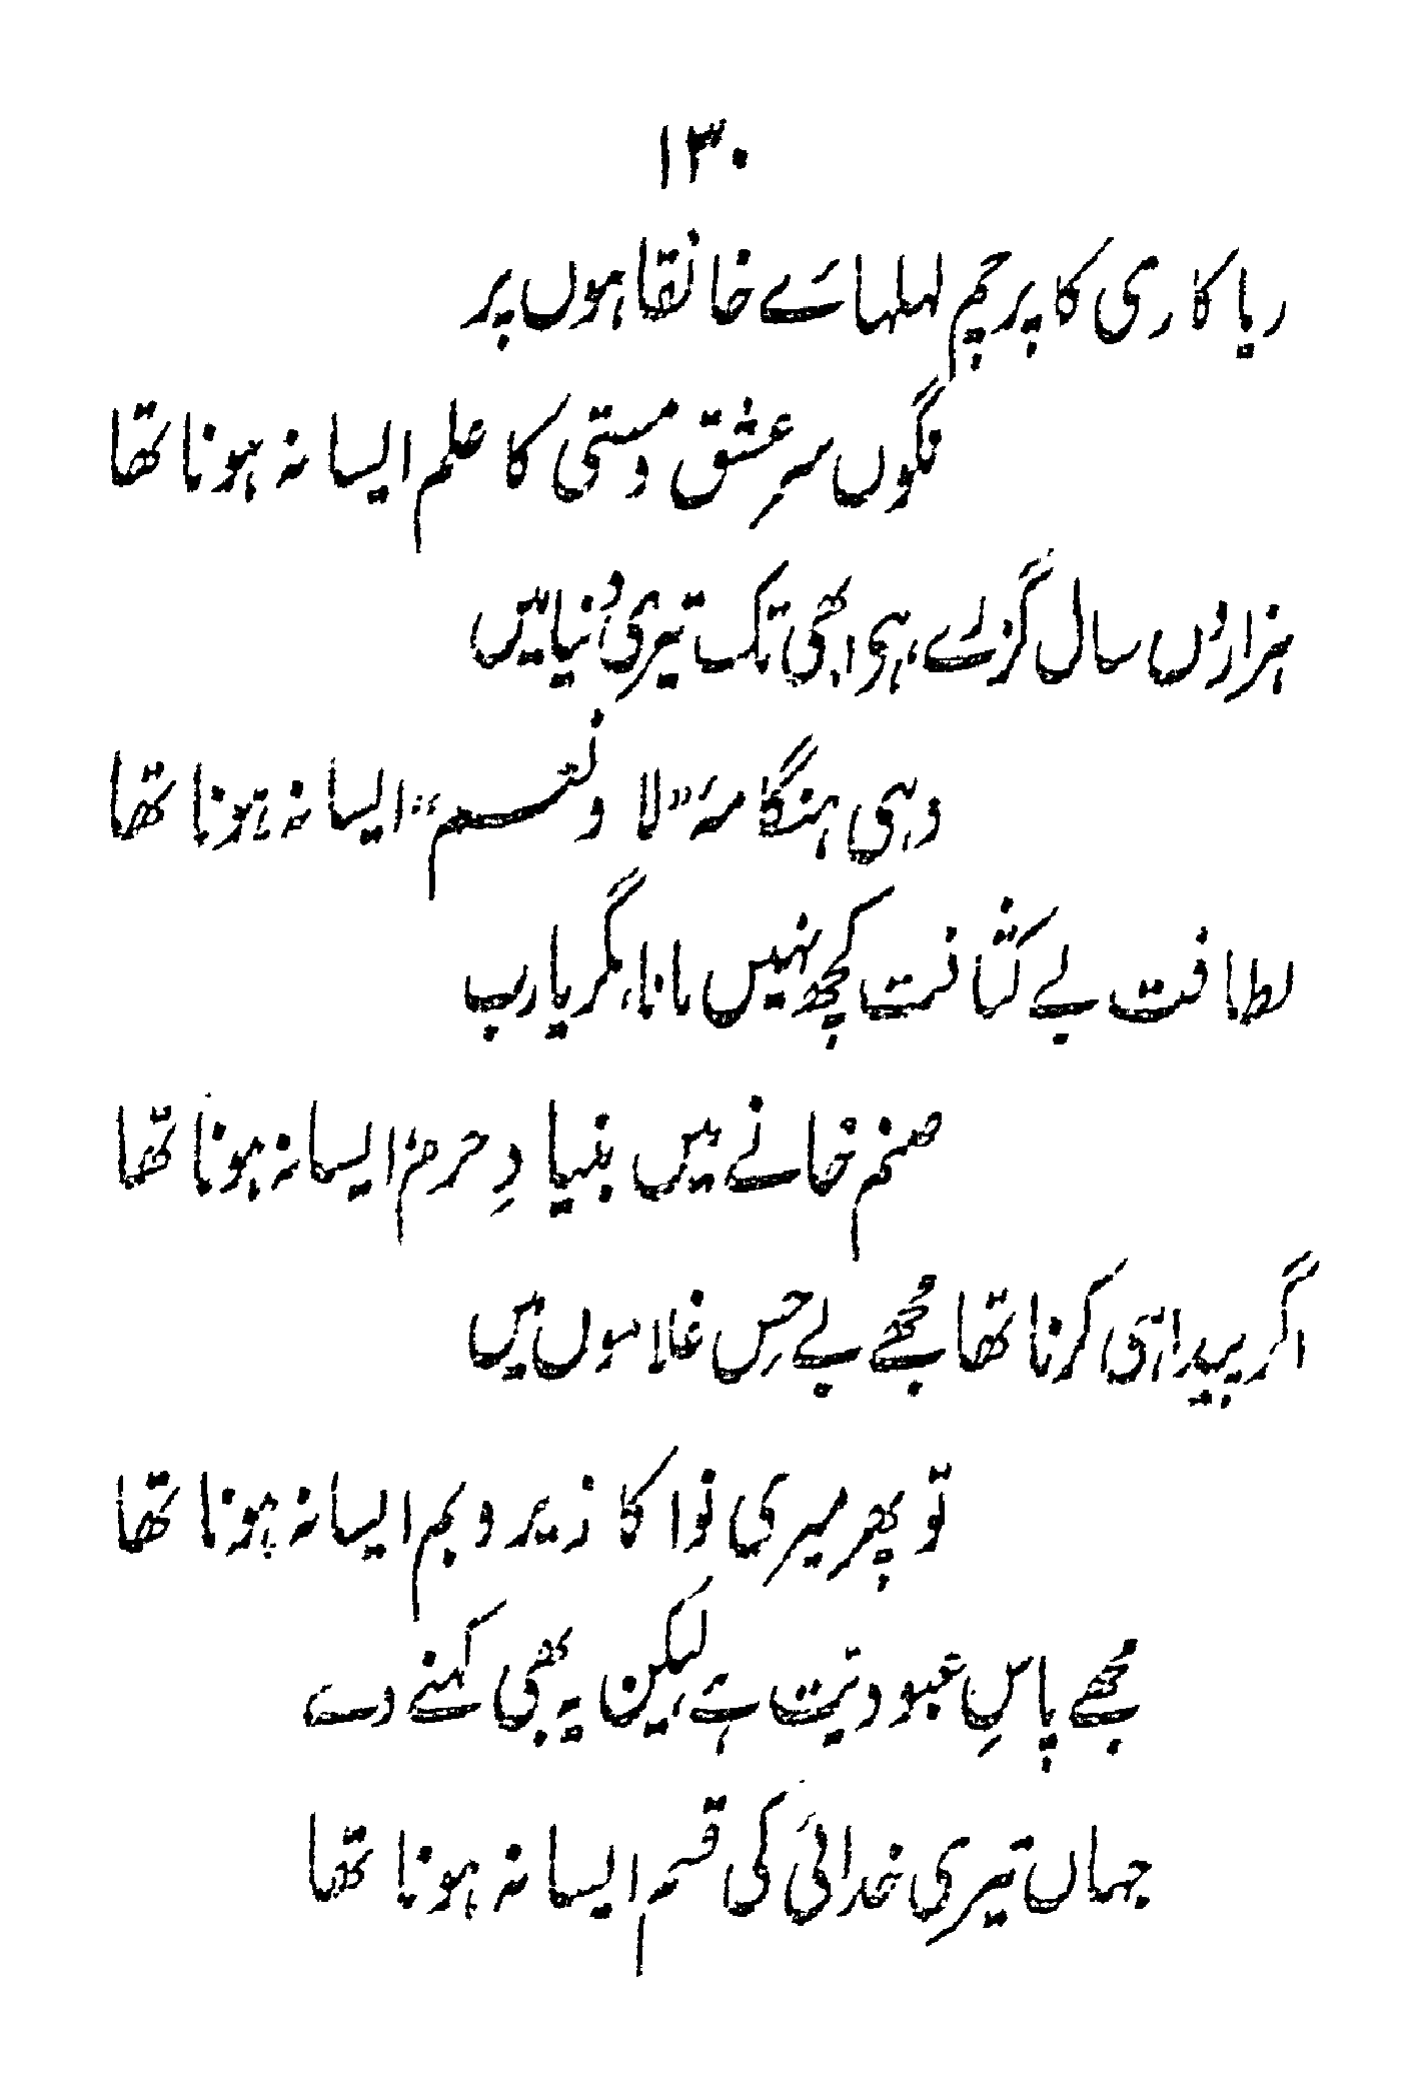 ۱۳۰
ریاکاری کا پرچم لہلہائے خانقاہوں پر
نگوں سرِ عشق و مستی کا علم ایسا نہ ہونا تھا
ہزاروں سال گزرے، ہی ابھی تک تیری دُنیا میں
وہی ہنگامۂ "لا و نعم" ایسا نہ ہونا تھا
لطافت بے کثافت کچھ نہیں مانا، مگر یارب
صنم خانے میں بنیادِ حرم ایسا نہ ہونا تھا
اگر پیدا ہی کرنا تھا مُجھے بے حِس غلاموں میں
تو پھر میری نوا کا زیر و بم ایسا نہ ہونا تھا
مُجھے پاسِ عبودیّت ہے لیکن یہ بھی کہنے دے
جہاں تیری خدائی کی قسم ایسا نہ ہونا تھا